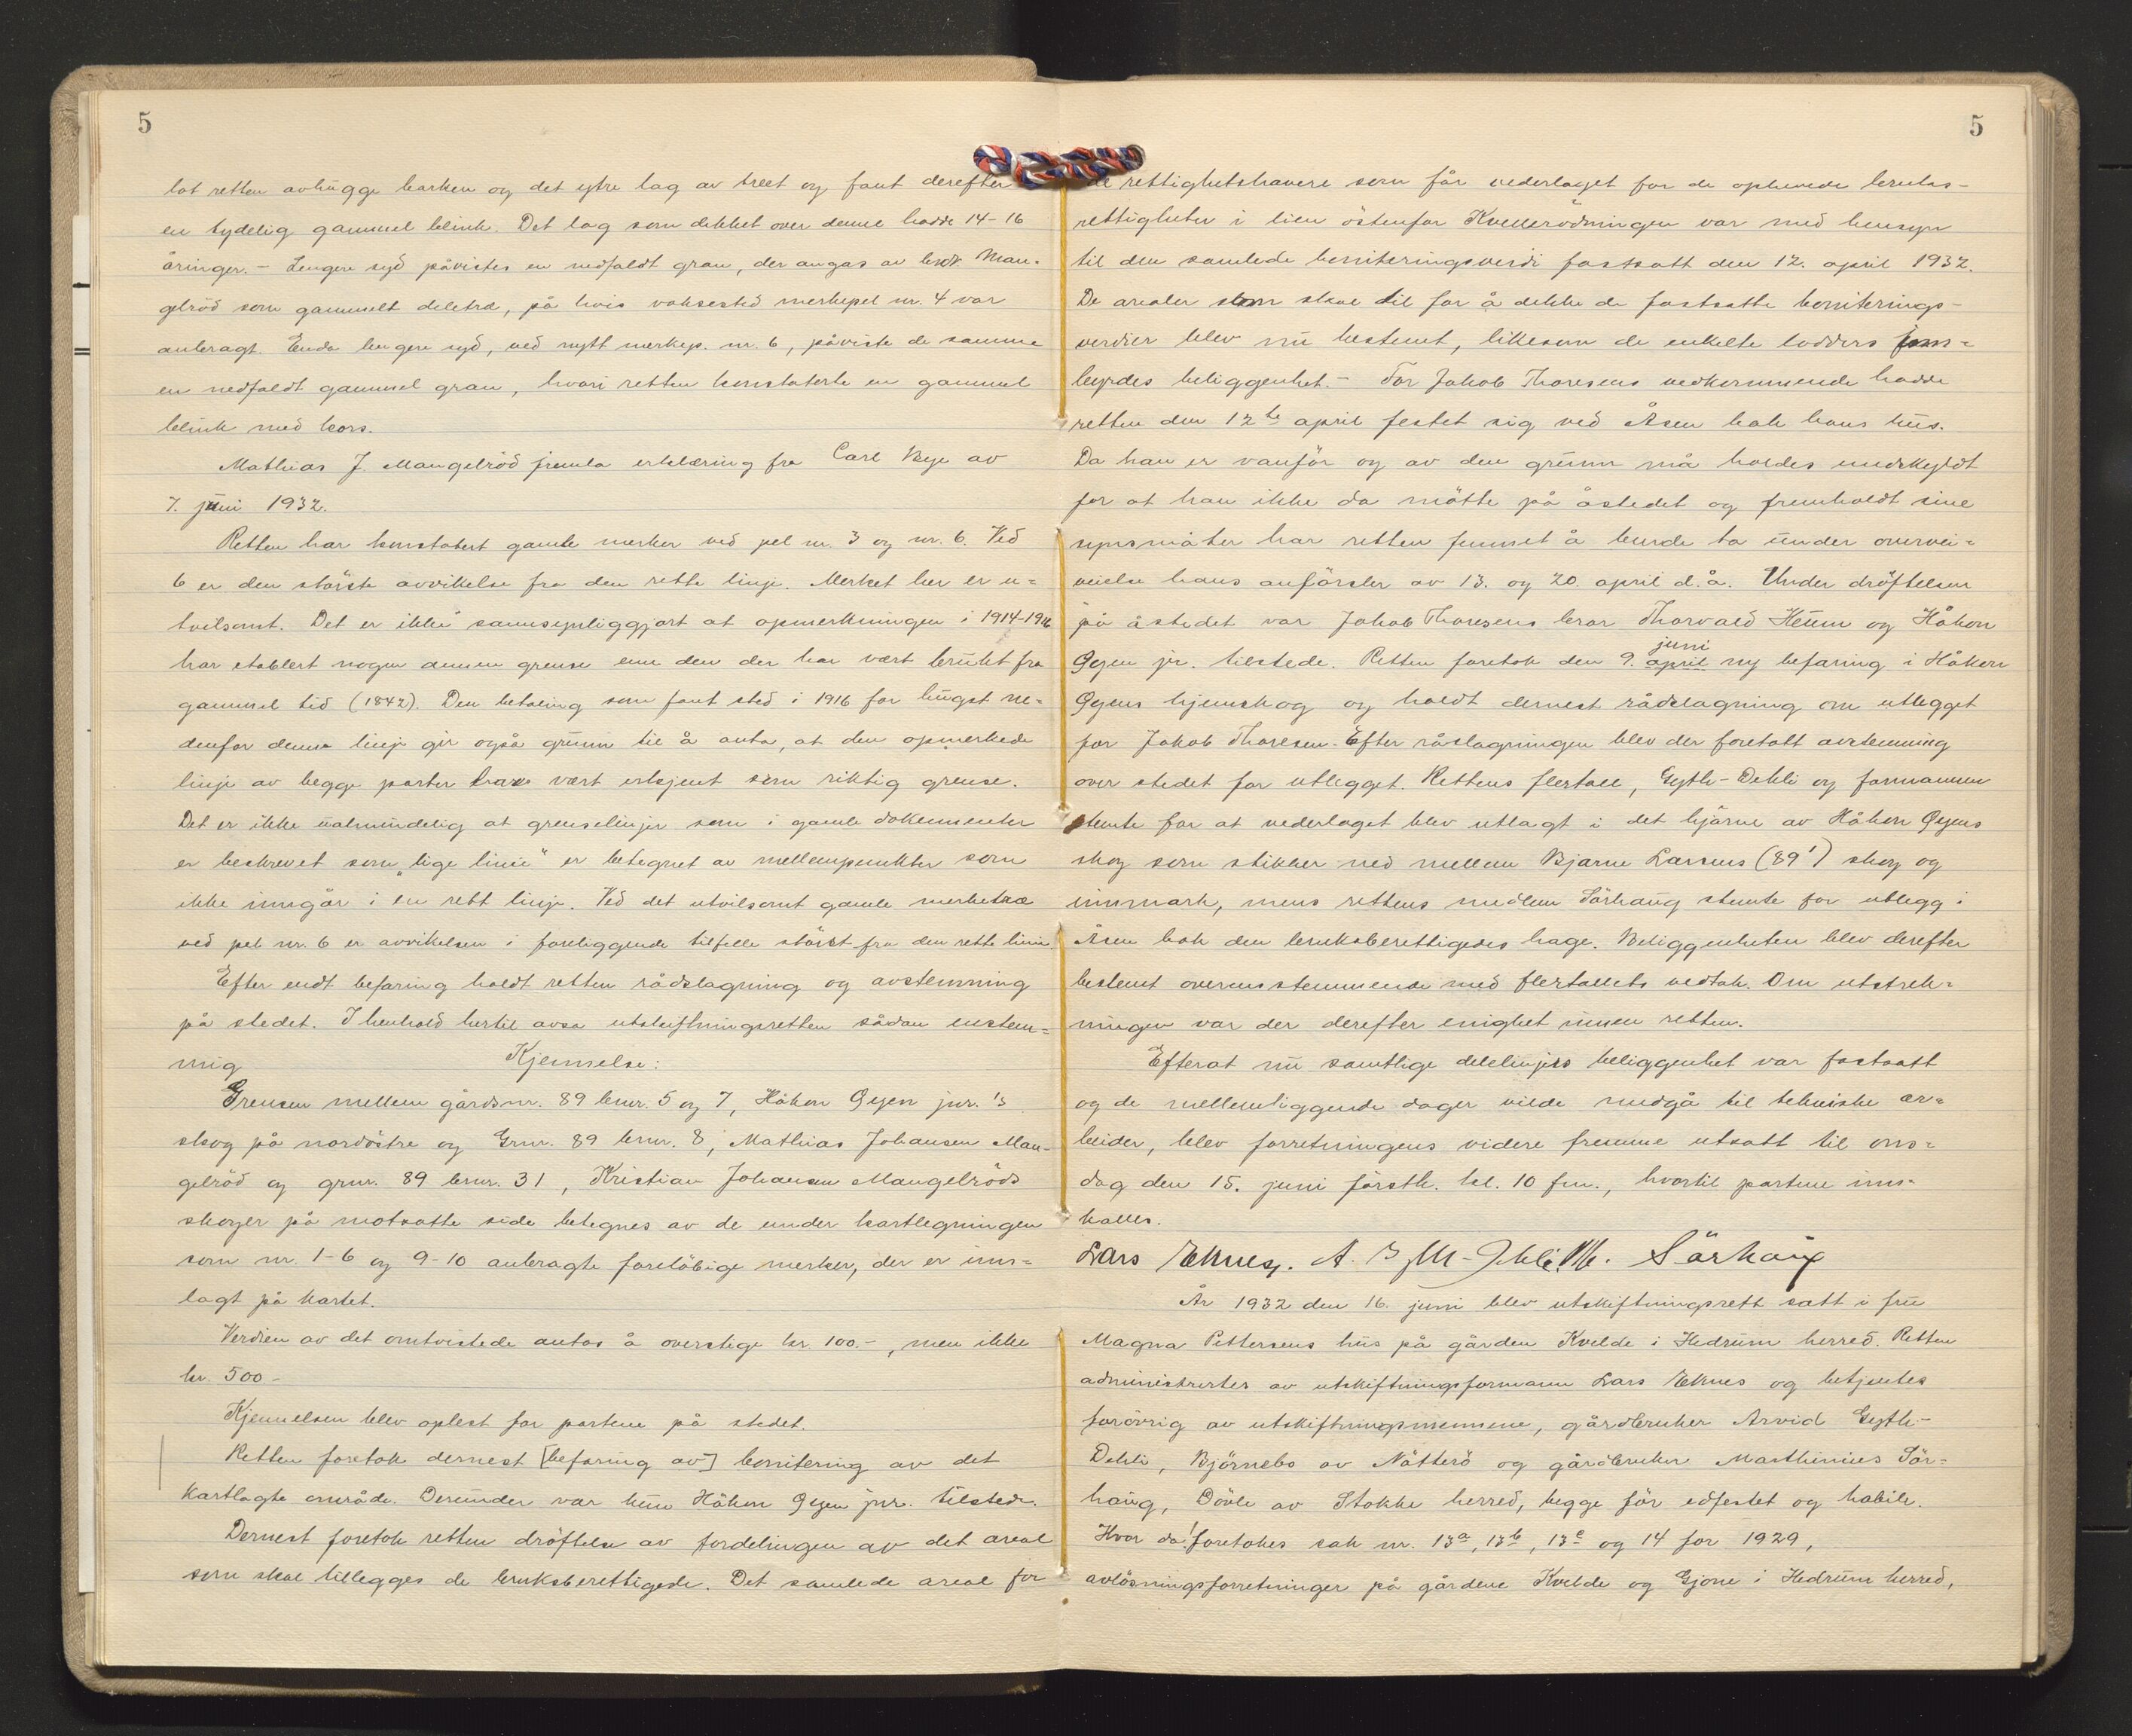 5
lot retten avhugge barken og det ytre lag av treet og fant derefter
en tydelig gammel blink. Det lag som dekket over denne hadde 14-16
åringer. - Lengere syd påvistes en nedfaldt gran, der angas av brdr. Man-
gelröd som gammelt deletræ, på hvis voksested merkepel nr. 4 var
anbragt. Enda lengere syd, ved nytt merkep. nr. 6, påviste de samme
en nedfaldt gammel gran, hvori retten konstaterte en gammel
blink med kors.
Mathias J. Mangelröd fremla erklæring fra Carl Bye av
7. juni 1932.
Retten har konstatert gamle merker ved pel nr. 3 og nr. 6. Ved
6 er den störste avvikelse fra den rette linje. Merket her er u-
tvilsomt. Det er ikke sannsynliggjort at opmerkningen i 1914-1916
har etablert nogen annen grense enn den der har vært brukt fra
gammel tid (1842). Den betaling som fant sted i 1916 for hugst ne-
denfor denne linje gir også grunn til å anta, at den opmerkede
linje av begge parter har vært erkjent som riktig grense.
Det er ikke ualmindelig at grenselinjer som i gamle dokumenter
er beskrevet som "lige linie" er betegnet av mellempunkter som
ikke inngår i en rett linje. Ved det utvilsomt gamle merketræ
ved pel nr. 6 er avvikelsen i foreliggende tilfelle störst fra den rette linie.
Efter endt befaring holdt retten rådslagning og avstemning
på stedet. I henhold hertil avsa utskiftningsretten sådan enstem-
mig Kjennelse:
Grensen mellem gårdsnr. 89 brnr. 5 og 7, Håkon Gyen jnr.'s
skog på nordöstre og Grnr. 89 brnr. 8, Mathias Johansen Man-
gelröd og grnr. 89 brnr. 31, Kristian Johansen Mangelröds
skoger på motsatte side betegnes av de under kartlegningen
som nr. 1-6 og 9-10 anbragte forelöbige merker, der er inn-
lagt på kartet.
Verdien av det omtvistede antas å overstige kr. 100.-, men ikke
kr. 500-
Kjennelsen blev oplest for partene på stedet.
Retten foretok dernest [befaring av] bonitering av det
kartlagte område. Derunder var kun Håkon Gyen jnr. tilstede.
Dernest foretok retten dröftelse av fordelingen av det areal
som skal tillegges de bruksberettigede. Det samlede areal for
5
de rettighetshavere som får vederlaget for de ophevede bruks-
rettigheter i lien östenfor Kvellerödningen var med hensyn
til den samlede boniteringsverdi fastsatt den 12. april 1932.
De arealer som skal til for å dekke de fastsatte boniterings-
verdier blev nu bestemt, likesom de enkelte lodders inn-
byrdes beliggenhet. - For Jakob Thoresens vedkommende hadde
retten den 12te april festet sig ved Åsen bak hans hus.
Da han er vanför og av den grunn må holdes undskyldt
for at han ikke da mötte på åstedet og fremholdt sine
synsmåter har retten funnet å burde ta under overvei-
veielse hans anförsler av 13. og 20. april d.å. Under dröftelsen
på åstedet var Jakob Thoresens bror Thorvald Heum og Håkon
Gyen jr. tilstede. Retten foretok den 9. april ny befaring i Håkon
juni
Gyens hjemskog og holdt dernest rådslagning om utlegget
for Jakob Thoresen. Efter råslagningen blev der foretatt avstemning
over stedet for utlegget. Rettens flertall, Gyth-Dehli og formannen
stemte for at vederlaget blev utlagt i det hjörne av Håkon Gyens
skog som stikker ned mellem Bjarne Larsens (89¹) skog og
innmark, mens rettens medlem Sörhaug stemte for utlegg i
Åsen bak den bruksberettigedes hage. Beliggenheten blev derefter
bestemt overensstemmende med flertallets vedtak. Om utstrek-
ningen var der derefter enighet innen retten.
Efterat nu samtlige delelinjers beliggenhet var fastsatt
og de mellemliggende dager vilde medgå til tekniske ar-
beider, blev forretningens videre fremme utsatt til ons-
dag den 15. juni förstk. kl. 10 fm., hvortil partene inn-
kalles.
Lars Eknes. A. Gyth-Dehli. M. Sörhaug
År 1932 den 16. juni blev utskiftningsrett satt i fru
Magna Pettersens hus på gården Kvelde i Hedrum herred. Retten
administrertes av utskiftningsformann Lars Eknes og betjentes
forövrig av utskiftningsmennene, gårdbruker Arvid Gyth-
Dehli, Björnebo av Nötterö og gårdbruker Marthinius Sör-
haug, Dövle av Stokke herred, begge för edfestet og habile.
Hvor da! foretokes sak nr. 13a, 13b, 13c og 14 for 1929,
avlösningsforretninger på gårdene Kvelde og Gjone i Hedrum herred,